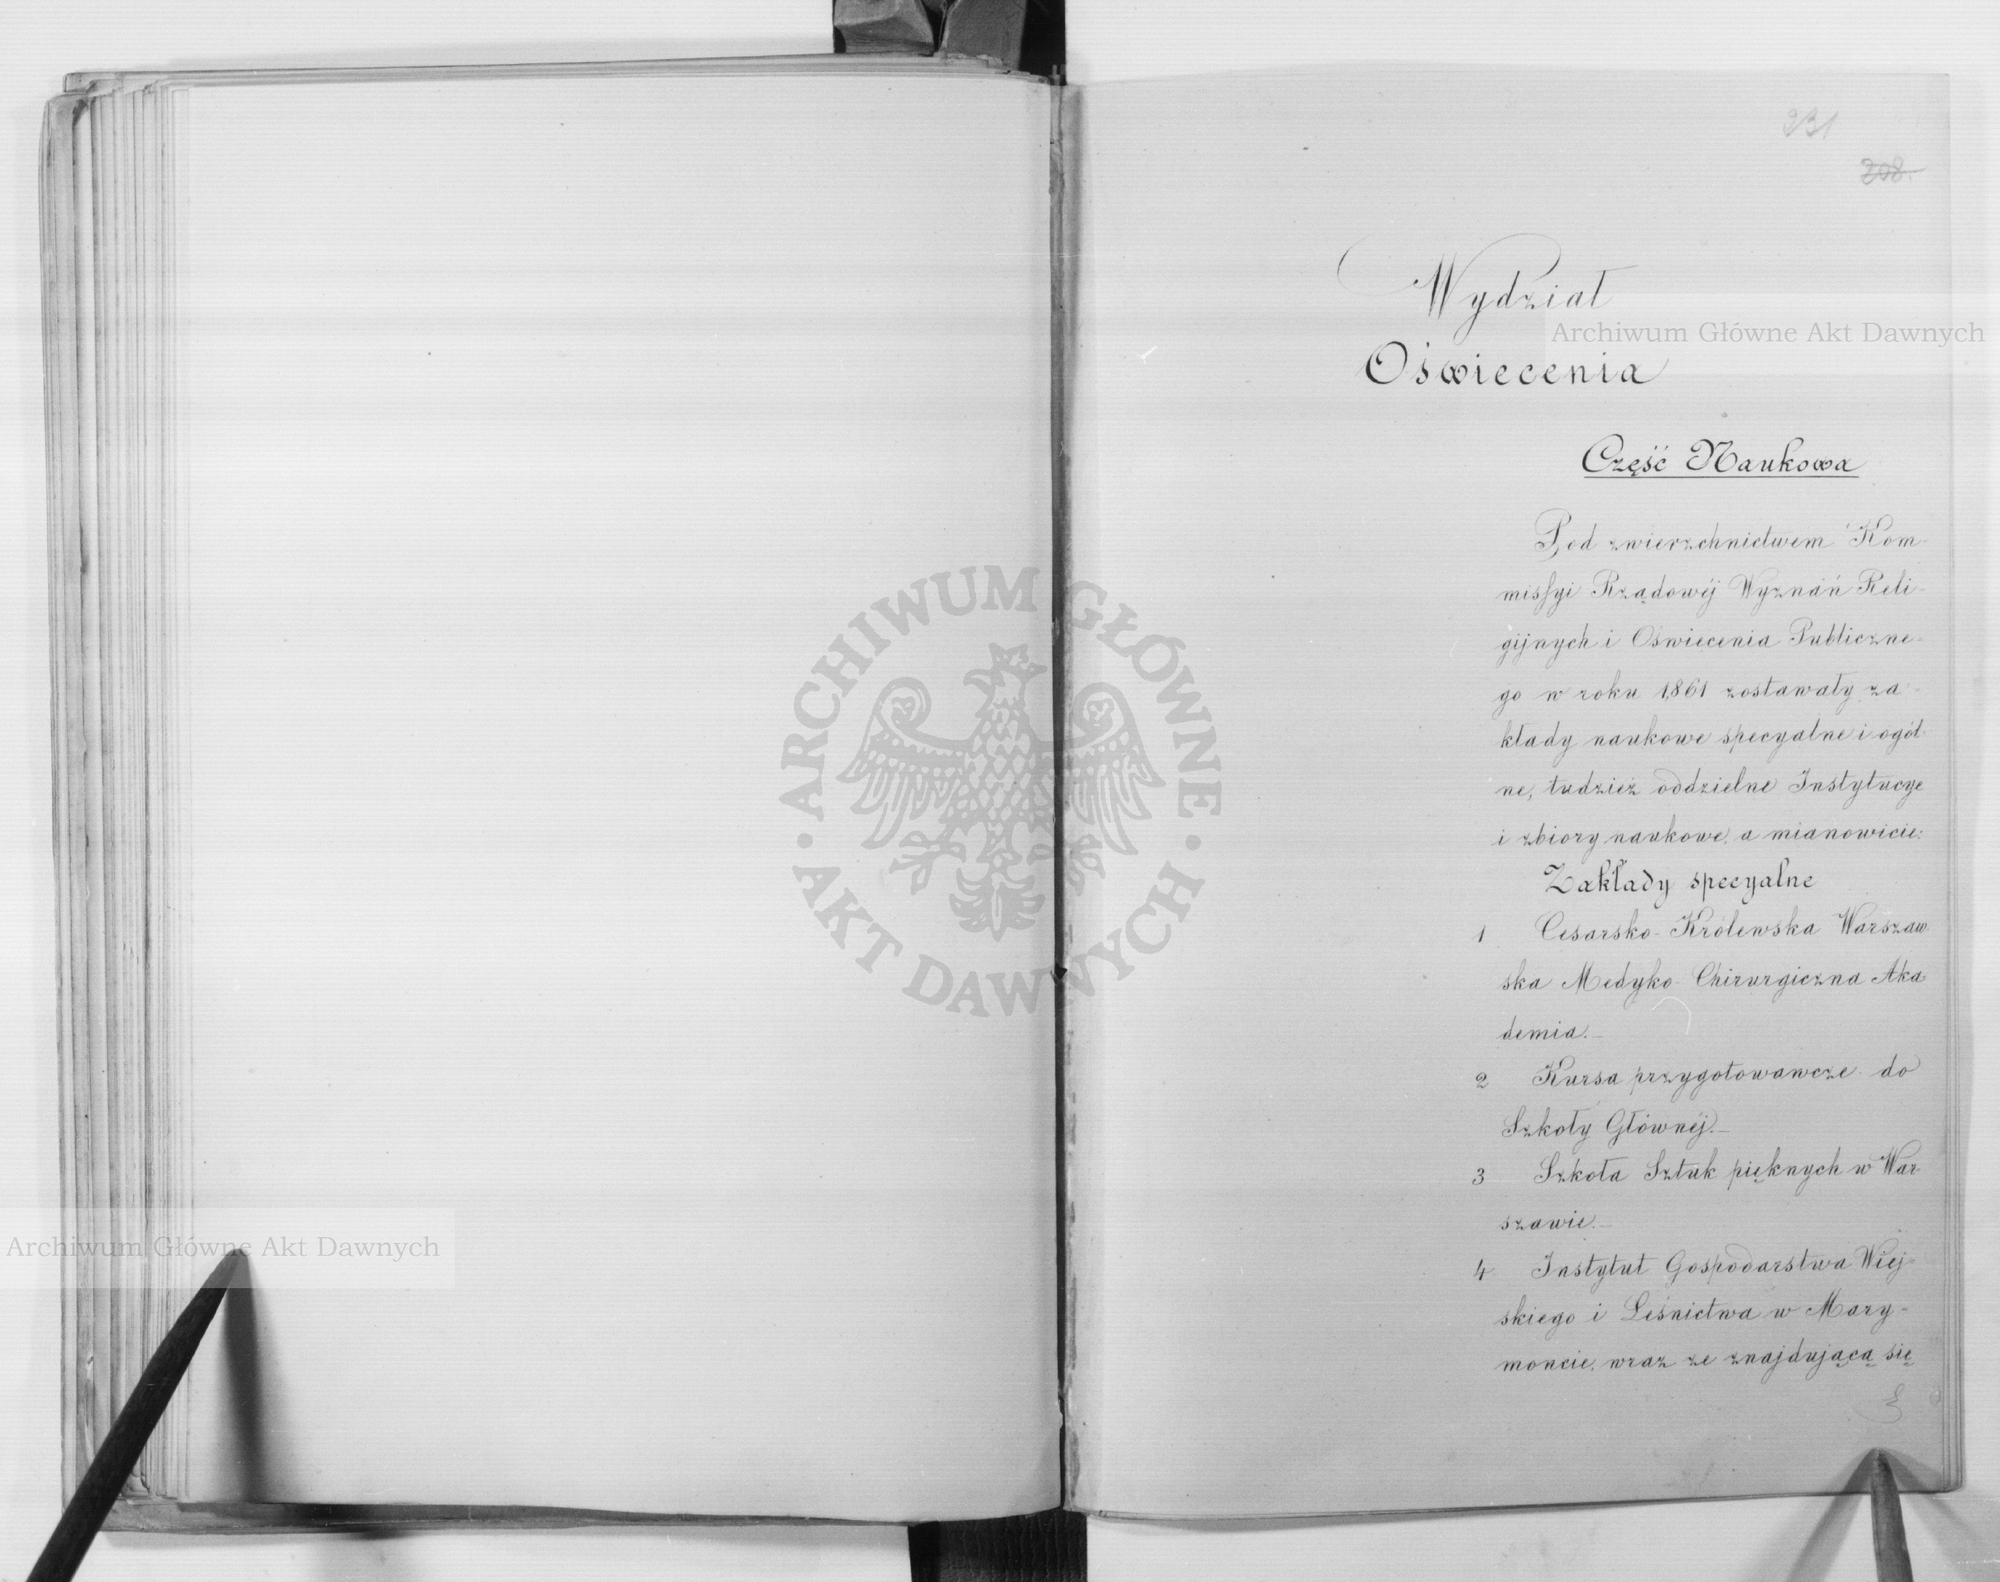 231
208.
Wydział
Oświecenia
Część Naukowa
Pod zwierzchnictwem Kom-
missyi Rządowéj Wyznań Reli-
gijnych i Oświecenia Publiczne-
go w roku 1861 zostawały za-
kłady naukowe specyalne i ogól-
ne, tudzież oddzielne Instytucye
i zbiory naukowe, a mianowicie:
Zakłady specyalne
1 Cesarsko-Królewska Warszaw-
ska Medyko-Chirurgiczna Aka-
demia.—
2 Kursa przygotowawcze do
Szkoły Głównéj.—
3 Szkoła Sztuk pięknych w War-
szawie.—
4 Instytut Gospodarstwa Wiej-
skiego i Leśnictwa w Mary-
moncie, wraz ze znajdującą się
ARCHIWUM GŁÓWNE AKT DAWNYCH
Archiwum Główne Akt Dawnych
Archiwum Główne Akt Dawnych